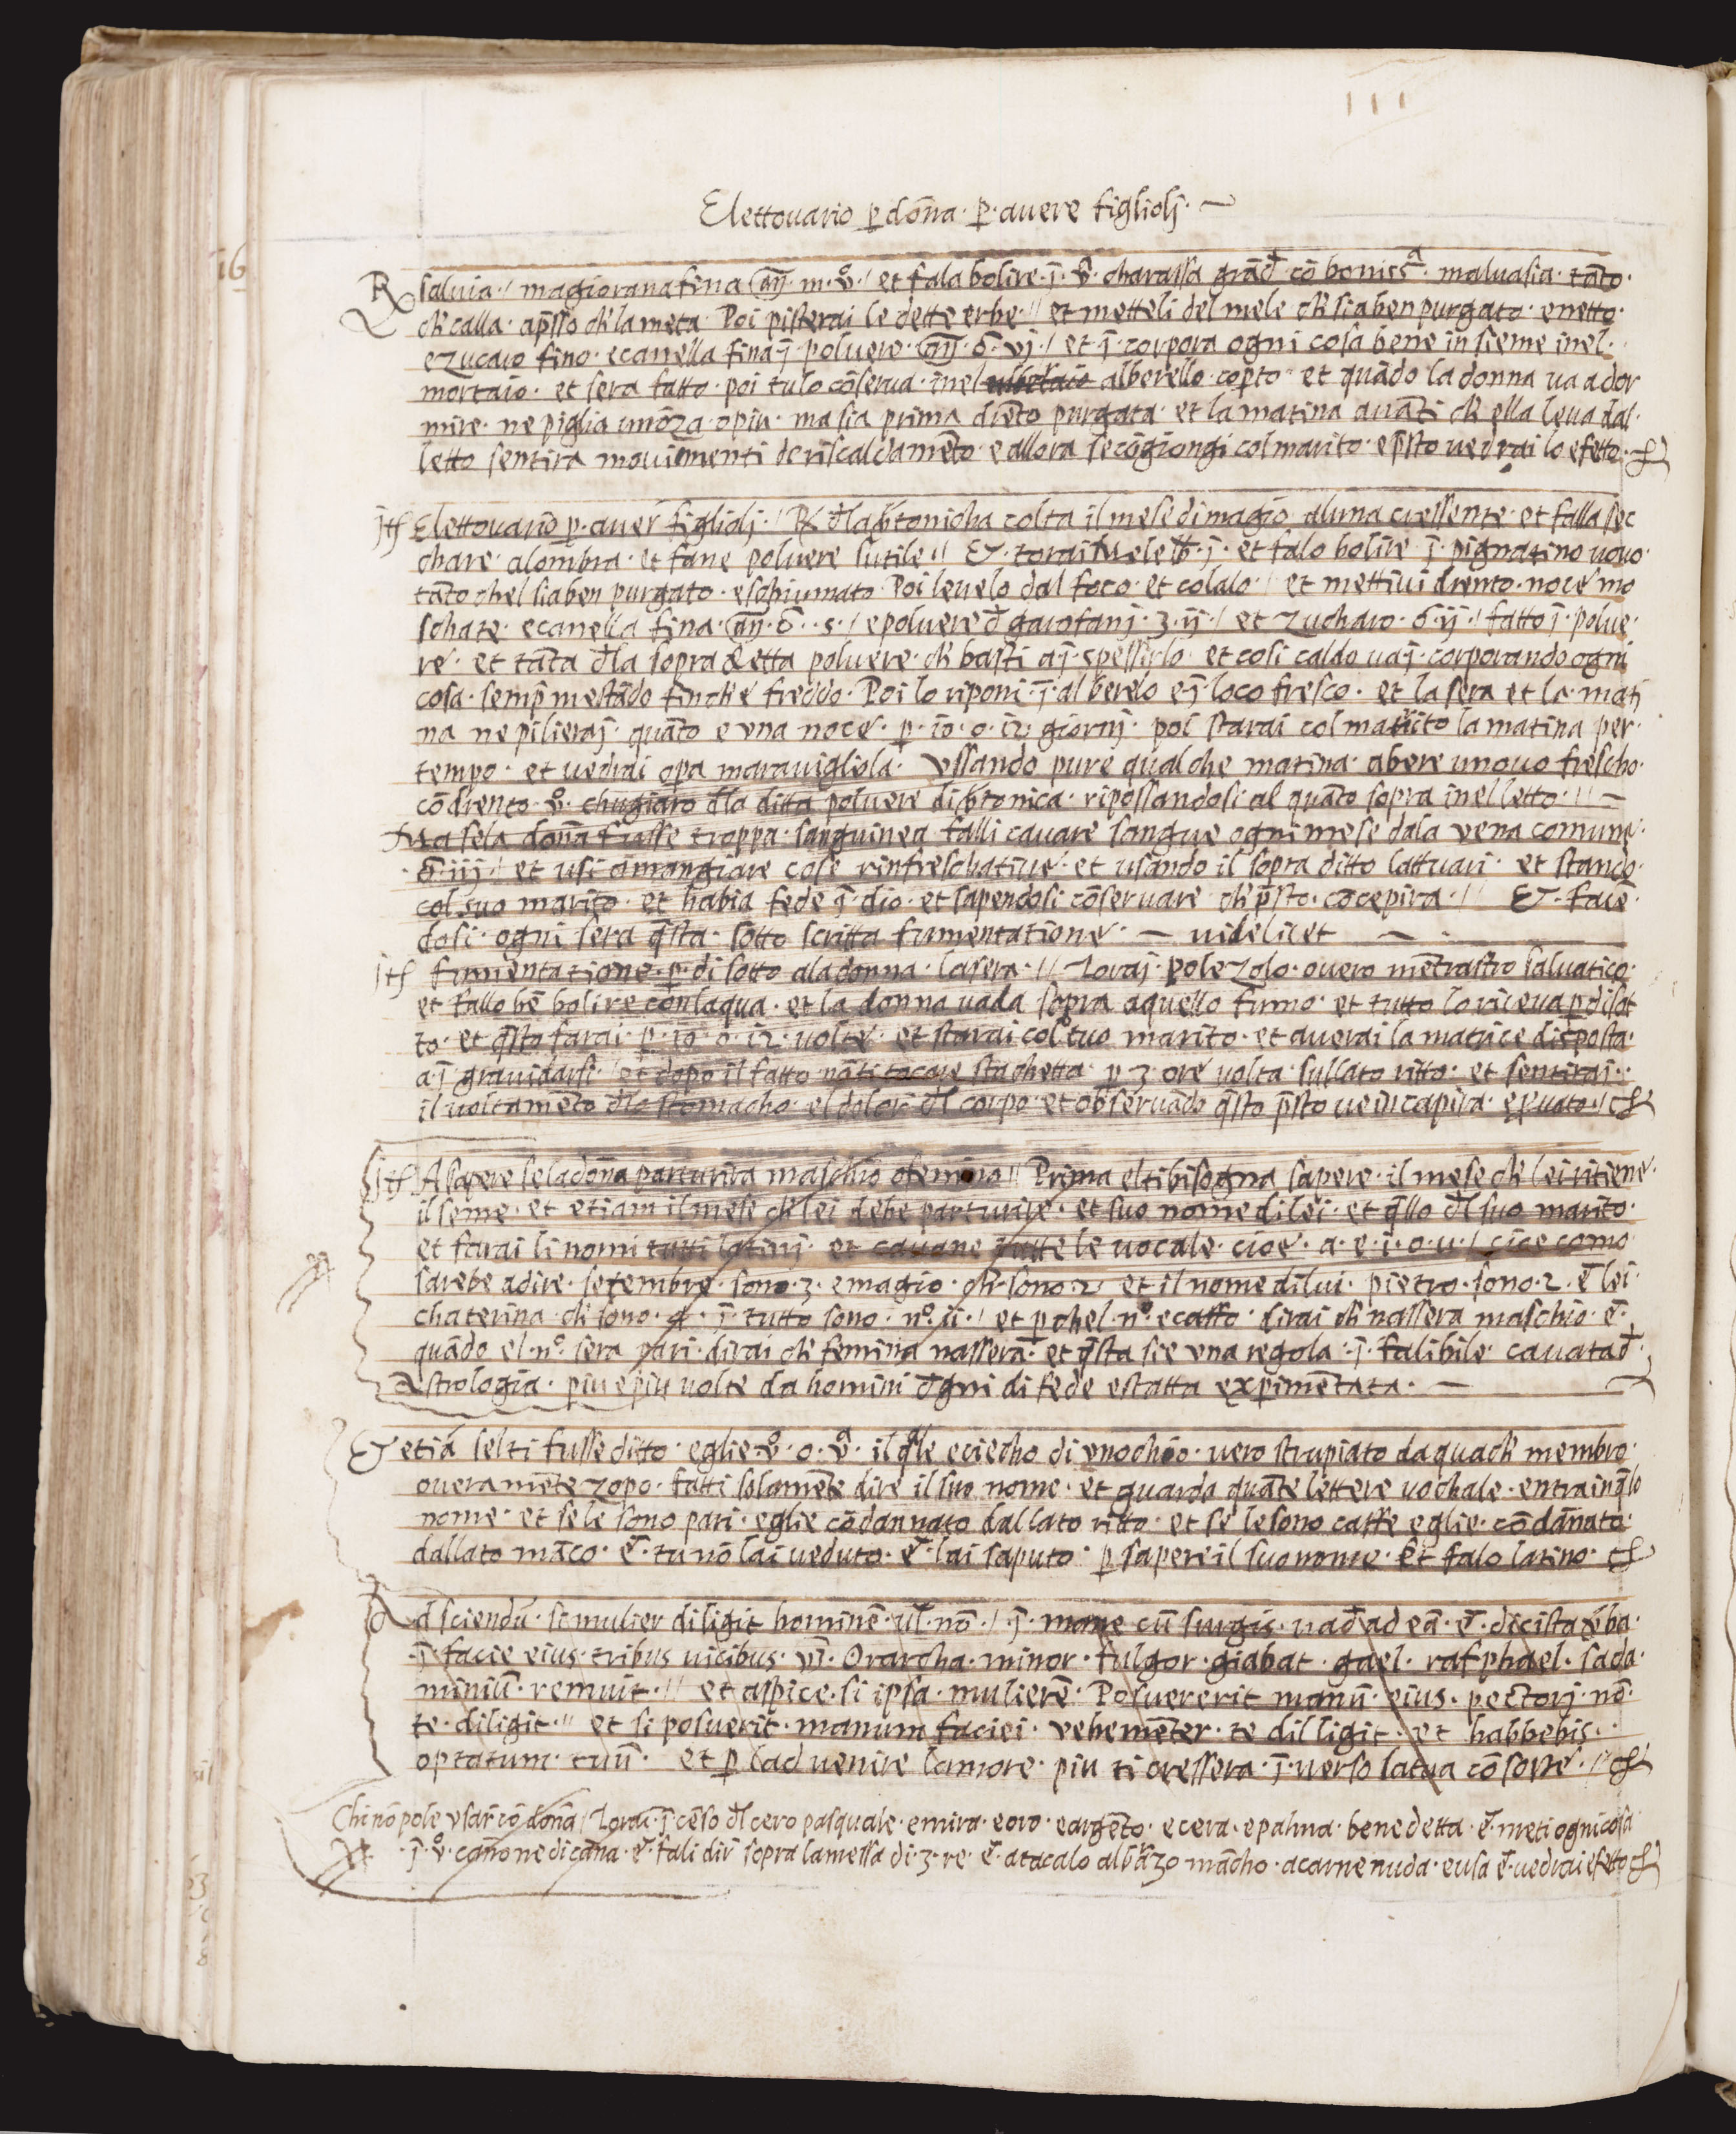 111
Elettouario p̱ dōna · p̱ · avere figliolj · ~
16
℞ salvia · / magiorana fina aīj · m · v̊ · / et fala bolire · ī · v̊ª · charassa grād̄ · cō boniss̄ª · malvasia · tāto ·
ch̄ calla · ap̄sso ch̄ la meta · Poi pisterai le dette erbe · // et metteli del mele ch̄ sia ben purgato · e netto ·
e zucaro fino · e canella fina ī polvere · aīj · ō · vj · / et ī · corpora ogni cosa bene insieme inel ·
mortaio · et sera fatto · poi tu lo cōserva · inel alberello · cop̱to · et quādo la donna va a dor
mire · ne piglia unōza · o piu · ma sia prima drēto purgata · et la matina avāti ch̄ ella leva dal ·
letto sentira movimenti de riscaldamēto · e allora se cōgiongi col marito · e p̄sto vedrai lo efetto ·
jtꝭ Elettouario p̱ · aver figliolj · / ℞ d̄la b̄tonicha colta il mese di magio aluna cressente · et falla sec
chare · alombra · et fane polvere sutile // Et · torai mele lb · j · et falo bolire ī · pignatino novo ·
tāto chel sia ben purgato · e schiumato · Poi levelo dal foco · et colalo · / et mettivi drento · noce mo
schate · e canella fina · aīj · ō · s · / e polvere d̄ garofanj · 3 · ij · / et zucharo · ō · ij · / fatto ī · polve ·
re · et tāta d̄la sopra detta polvere · ch̄ basti a ī · spessirlo · et cosi caldo va ī · corporando ogni
cosa · semp̄ mestādo finch̄ e freddo · Poi lo riponi · ī · alberelo e ī loco fresco · et la sera et la · mati
na ne pilieraj · quāto e una noce · p̱ · 10 · o · 12 · giornj · poi starai col marito la matina per ·
tempo · et vedrai op̱a maravigliosa · Ussando pure qualche matina · a bere un ovo frescho ·
cō drento · v̊ · chugiaro d̄la ditta polvere di b̄tonica · ripossandosi al quāto sopra inel letto · // ~
Ma se la donā fusse troppa · sanguinea falli cavare sangue ogni mese dala vena comune ·
ō · iij · / et usi a mangiare cose rinfreschative · et usādo il sopra ditto lattuari · et stando ·
col suo marito · et habia fede ī · dio · et sapendosi cōservare ch̄ p̄sto · cōcepira · // Et · facē
dosi · ogni sera q̄sta · sotto scritta fumentatione · ~ videlicet ~ ·
jtꝭ fumentatione · p̱ · di sotto ala donna · la sera · // Toraj · polezolo · overo mētrastro salvatico ·
et fallo bē bolire con laqua · et la donna vada sopra a quello fumo · et tutto lo riceva p̱ di sot
to · et q̄sto farai · p̱ · 10 · o · 12 · volte · et starai col tuo marito · et averai la matrice disposta ·
a · ī · gravidarsi · / et dopo il fatto nō ti tocare sta chetta · p̱ 3 · ore volta · sul lato ritto · et sentirai ·
il voltamēto d̄lo stomacho · el dolor̄ d̄l corpo · et observādo q̄sto p̄sto
jtꝭ A sapere se la dona parturira maschio o femina // Prima el ti bisogna sapere · il mese ch̄ lei ritiene ·
il seme · et etiam il mese ch̄ lei debe parturire · et suo nome di lei · et q̄llo d̄l suo marito ·
et farai li nomi tutti latinj · et cavane tutte le vocale · cioe · a · e · i · o · u · / cioe como
sarebe a dire · setembre · sono · 3 · e magio · ch̄ sono 2 et il nome di lui · pietro · sono · 2 · ē lei ·
chaterina · ch̄ sono · 4 · ī · tutto sono · n̊ · ii · / et p̱ chel · n̊ · e caffo · dirai ch̄ nassera maschio · ē ·
quādo el · n̊ · sera pari · dirai ch̄ femina nassera · et q̄sta sie una regola · ī · falibile · cavata d̄ ·
Astrologia · piu e piu volte da homini degni di fede e statta exp̱imētata · ~
Et etiā sel ti fusse ditto · eglie · v̊ · o · vª · il q̄le e ciecho di un ochio · vero strupiato da quach̄ membro ·
overamēte zopo · fatti solamēte dire il suo nome · et guarda quāte lettere vochale · entra in q̄lo
nome · et se le sono pari · eglie cōdannato dal lato ritto · et se le sono caffe eglie · cōdānato ·
dallato māco · ē · tu nō lai veduto · ē · lai saputo · p̱ sapere il suo nome · Et falo latino ·
Ad sciendū · si mulier diligit hominē · ul̄ · nō · / ī · mane cū surgis · vad̄ ad eā · ē · dic ista v̄ba ·
ī · facie eius · tribus vicibus · vī · Orarcha · minor · fulgor · giabat · gael · rafphael · sada ·
miniū · remuit · // et aspice · si ipsa · mulierē · Posuererit manū · eius · pectorj · nō ·
te · diligit · // et si posuerit · manum faciei · vehemēter · te dilligit · et habbebis ·
optatum · tuū · et p̱ lad venire lamore · piu ti cressera · ī · verso la tua cōsorte · //
Chi nō pole usar cō dona / Torai · ī · cēso d̄l cero pasquale · e mira · e oro · e argēto · e cera · e palma · benedetta · ē · meti ogni cosa
· ī · v̊ · canone di cana · ē · fali dir̄ sopra la messa di · 3 · re · ē · atacalo al brazo mācho · a carne nuda · e usa ē · vedrai efetto